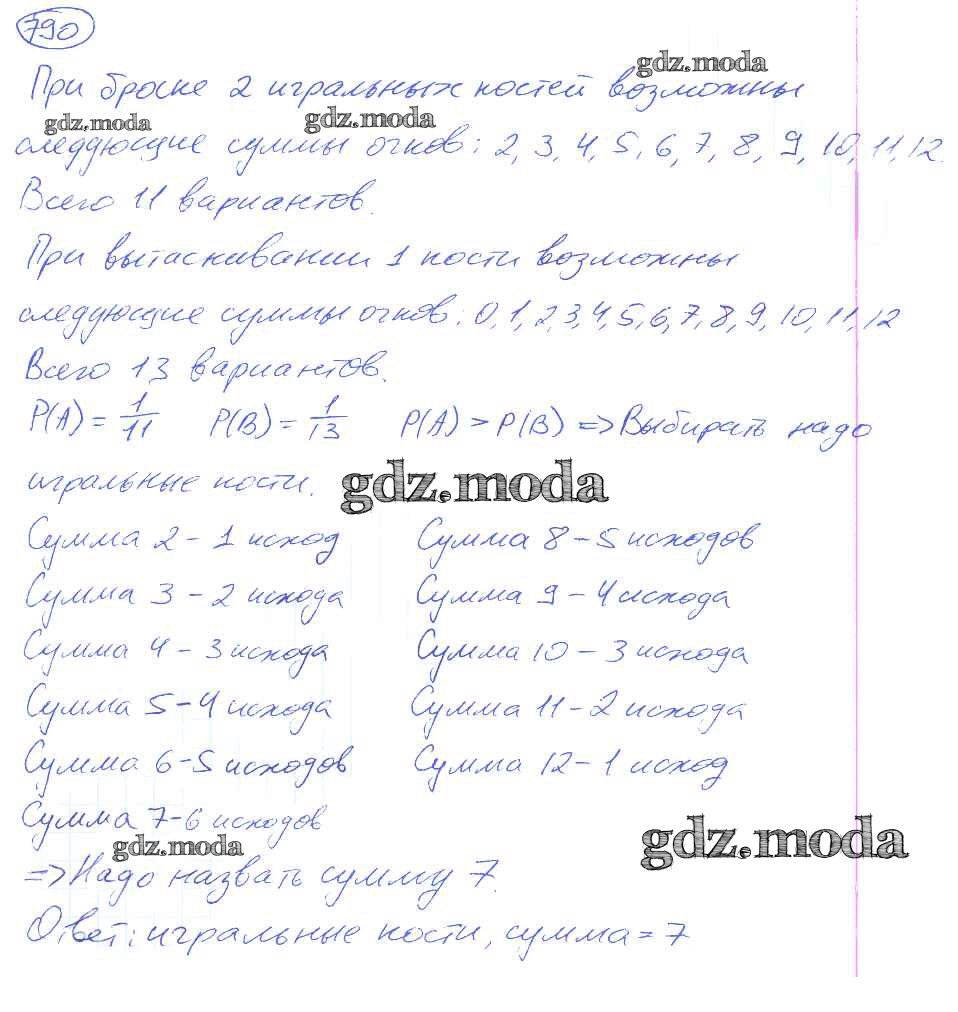 790
При броске 2 игральных костей возможны
следующие суммы очков: 2, 3, 4, 5, 6, 7, 8, 9, 10, 11, 12.
Всего 11 вариантов.
При вытаскивании 1 кости возможны
следующие суммы очков: 0, 1, 2, 3, 4, 5, 6, 7, 8, 9, 10, 11, 12
Всего 13 вариантов.
P(A) = 1/11 P(B) = 1/13 P(A) > P(B) => Выбирать надо
игральные кости.
Сумма 2 – 1 исход Сумма 8 – 5 исходов
Сумма 3 – 2 исхода Сумма 9 – 4 исхода
Сумма 4 – 3 исхода Сумма 10 – 3 исхода
Сумма 5 – 4 исхода Сумма 11 – 2 исхода
Сумма 6 – 5 исходов Сумма 12 – 1 исход
Сумма 7 – 6 исходов
=> Надо назвать сумму 7.
Ответ: игральные кости, сумма = 7
gdz.moda
gdz.moda
gdz.moda
gdz.moda
gdz.moda
gdz.moda